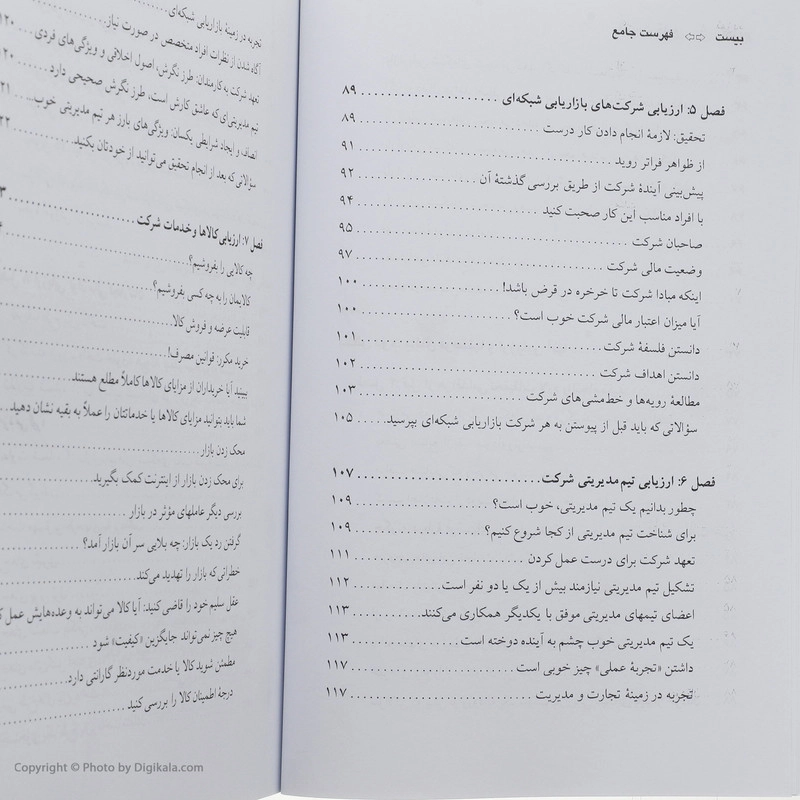 بیست ⇦⇨ فهرست جامع
فصل ۵: ارزیابی شرکت‌های بازاریابی شبکه‌ای ........ ۸۹
تحقیق: لازمهٔ انجام دادن کار درست ........ ۸۹
از ظواهر فراتر روید ........ ۹۱
پیش‌بینی آیندهٔ شرکت از طریق بررسی گذشتهٔ آن ........ ۹۲
با افراد مناسب این کار صحبت کنید ........ ۹۴
صاحبان شرکت ........ ۹۵
وضعیت مالی شرکت ........ ۹۷
اینکه مبادا شرکت تا خرخره در قرض باشد! ........ ۱۰۰
آیا میزان اعتبار مالی شرکت خوب است؟ ........ ۱۰۰
دانستن فلسفهٔ شرکت ........ ۱۰۱
دانستن اهداف شرکت ........ ۱۰۲
مطالعهٔ رویه‌ها و خط‌مشی‌های شرکت ........ ۱۰۳
سؤالاتی که باید قبل از پیوستن به هر شرکت بازاریابی شبکه‌ای بپرسید ........ ۱۰۵
فصل ۶: ارزیابی تیم مدیریتی شرکت ........ ۱۰۷
چطور بدانیم یک تیم مدیریتی، خوب است؟ ........ ۱۰۹
برای شناخت تیم مدیریتی از کجا شروع کنیم؟ ........ ۱۰۹
تعهد شرکت برای درست عمل کردن ........ ۱۱۱
تشکیل تیم مدیریتی نیازمند بیش از یک یا دو نفر است ........ ۱۱۲
اعضای تیمهای مدیریتی موفق با یکدیگر همکاری می‌کنند ........ ۱۱۳
یک تیم مدیریتی خوب چشم به آینده دوخته است ........ ۱۱۳
داشتن «تجربهٔ عملی» چیز خوبی است ........ ۱۱۷
تجربه در زمینهٔ تجارت و مدیریت ........ ۱۱۷
تجربه در زمینهٔ بازاریابی شبکه‌ای ........
آگاه شدن از نظرات افراد متخصص در صورت نیاز ........
تعهد شرکت به کارمندان: طرز نگرش، اصول اخلاقی و ویژگی‌های فردی ........ ۱۲۰
تیم مدیریتی‌ای که عاشق کارش است، طرز نگرش صحیحی دارد ........ ۱۲۰
انصاف و ایجاد شرایطی یکسان: ویژگی‌های بارز هر تیم مدیریتی خوب ........ ۲۱
سؤالاتی که بعد از انجام تحقیق می‌توانید از خودتان بکنید ........ ۲۲
فصل ۷: ارزیابی کالاها و خدمات شرکت ........ ۳
چه کالایی را بفروشیم؟ ........
کالایمان را به چه کسی بفروشیم؟ ........
قابلیت عرضه و فروش کالا ........
خرید مکرر: قوانین مصرف! ........
ببینید آیا خریداران از مزایای کالاها کاملاً مطلع هستند ........
شما باید بتوانید مزایای کالاها یا خدماتتان را عملاً به بقیه نشان دهید ........
محک زدن بازار ........
برای محک زدن بازار از اینترنت کمک بگیرید ........
بررسی دیگر عاملهای مؤثر در بازار ........
گرفتن رد یک بازار: چه بلایی سر آن بازار آمد؟ ........
خطراتی که بازار را تهدید می‌کند ........
عقل سلیم خود را قاضی کنید: آیا کالا می‌تواند به وعده‌هایش عمل
هیچ چیز نمی‌تواند جایگزین «کیفیت» شود ........
مطمئن شوید کالا یا خدمت موردنظر گارانتی دارد ........
درجهٔ اطمینان کالا را بررسی کنید ........
Copyright © Photo by Digikala.com